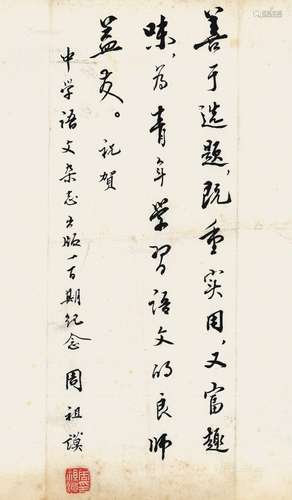 善于选题，既重实用，又富趣
味，为青年学習语文的良师
益友。祝賀
中学语文杂志出版一百期纪念 周祖谟